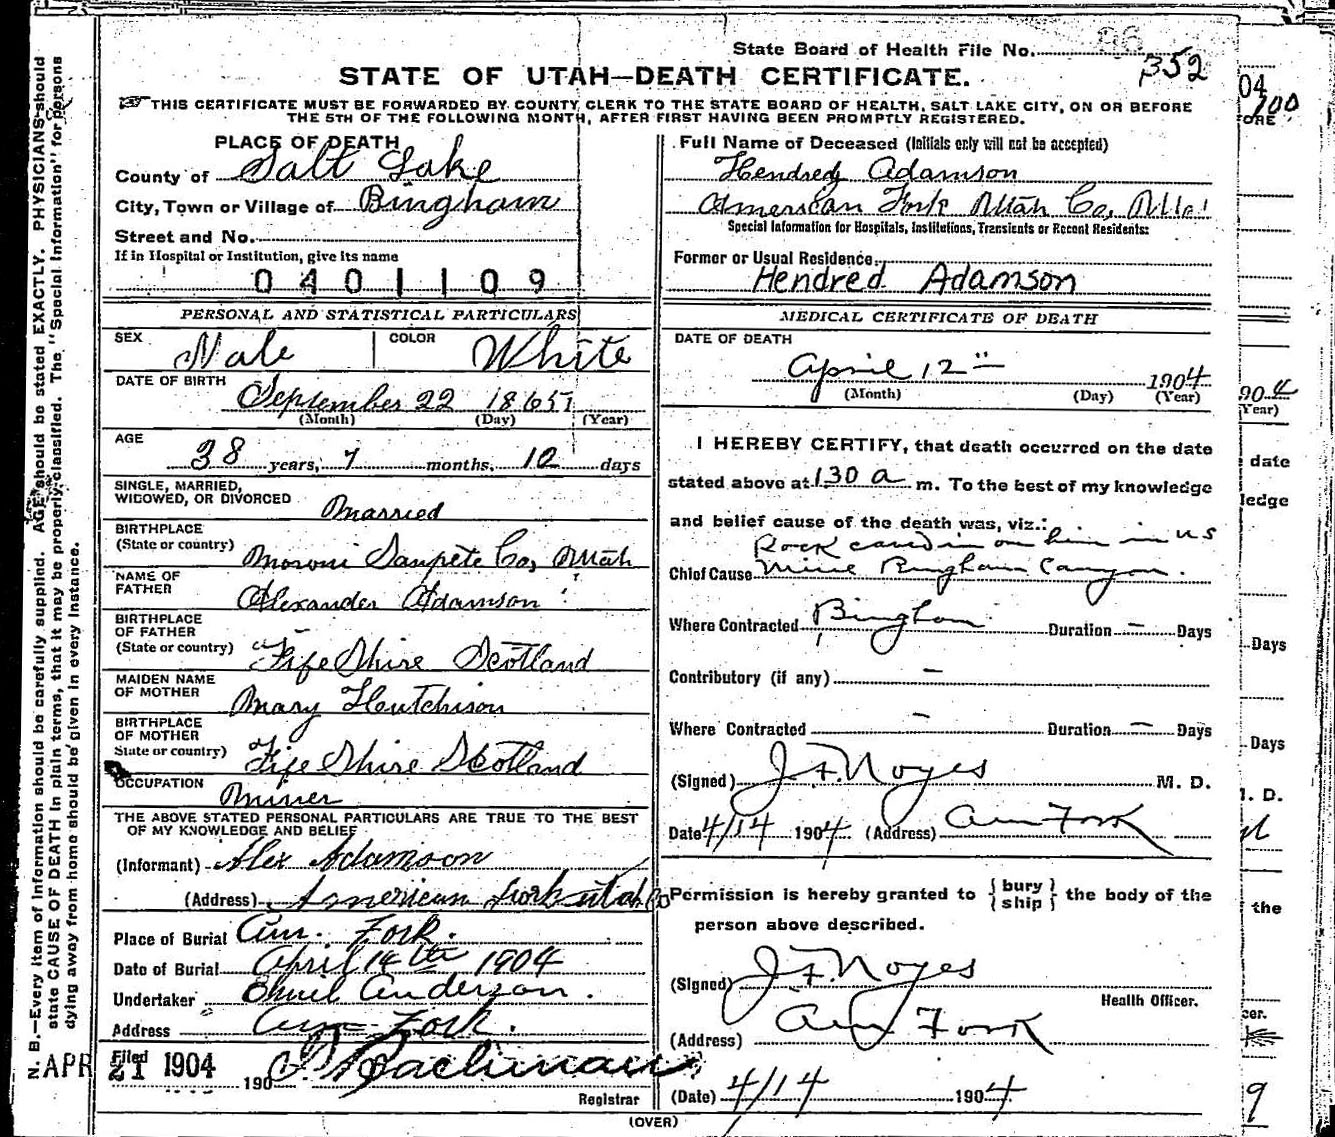 State Board of Health File No.
352
STATE OF UTAH—DEATH CERTIFICATE.
THIS CERTIFICATE MUST BE FORWARDED BY COUNTY CLERK TO THE STATE BOARD OF HEALTH, SALT LAKE CITY, ON OR BEFORE
THE 5TH OF THE FOLLOWING MONTH, AFTER FIRST HAVING BEEN PROMPTLY REGISTERED.
PLACE OF DEATH
County of Salt Lake
City, Town or Village of Bingham
Street and No.
If in Hospital or Institution, give its name
0401109
Full Name of Deceased (Initials only will not be accepted)
Hendred Adamson
American Fork Utah Co, Utah
Special Information for Hospitals, Institutions, Transients or Recent Residents:
Former or Usual Residence
Hendred Adamson
PERSONAL AND STATISTICAL PARTICULARS
SEX Male COLOR White
DATE OF BIRTH
September 22 1865
(Month) (Day) (Year)
AGE
38 years, 7 months, 10 days
SINGLE, MARRIED,
WIDOWED, OR DIVORCED Married
BIRTHPLACE
(State or country) Moroni Sanpete Co, Utah
NAME OF
FATHER Alexander Adamson
BIRTHPLACE
OF FATHER
(State or country) Fife Shire Scotland
MAIDEN NAME
OF MOTHER Mary Hutchison
BIRTHPLACE
OF MOTHER
State or country) Fife Shire Scotland
OCCUPATION
Miner
THE ABOVE STATED PERSONAL PARTICULARS ARE TRUE TO THE BEST
OF MY KNOWLEDGE AND BELIEF
(Informant) Alex Adamson
(Address) American Fork Utah Co
Place of Burial Am. Fork.
Date of Burial April 14th 1904
Undertaker Anderson.
Address Am Fork.
Filed
APR 21 1904
190
Registrar
MEDICAL CERTIFICATE OF DEATH
DATE OF DEATH
April 12" 1904
(Month) (Day) (Year)
I HEREBY CERTIFY, that death occurred on the date
stated above at 130 a m. To the best of my knowledge
and belief cause of the death was, viz.:
Rock caved in on him in U S
Chief Cause Mine Bingham Canyon.
Where Contracted Bingham Duration — Days
Contributory (if any) —
Where Contracted — Duration — Days
(Signed) J. F. Noyes M. D.
Date 4/14 1904 (Address) Am Fork
Permission is hereby granted to { bury ship } the body of the
person above described.
(Signed) J. F. Noyes
Health Officer.
(Address) Am Fork
(Date) 4/14 1904
(OVER)
N. B.—Every item of information should be carefully supplied. AGE should be stated EXACTLY. PHYSICIANS should
state CAUSE OF DEATH in plain terms, that it may be properly classified. The "Special Information" for persons
dying away from home should be given in every instance.
04
100
FORE
904
Year)
date
ledge
Days
Days
I. D.
the
cer.
9